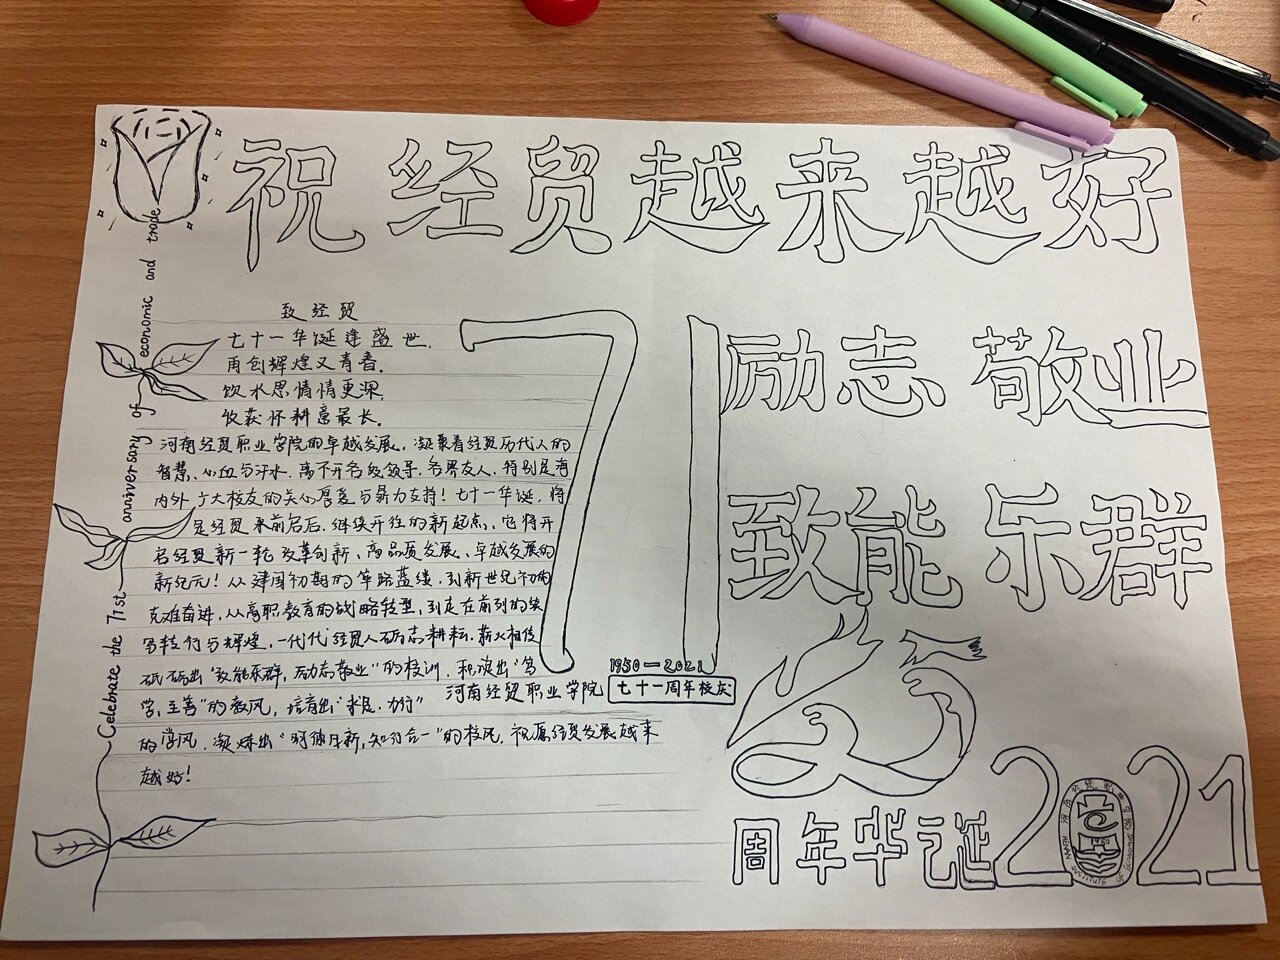 祝经贸越来越好
Celebrate the 71st anniversary of economic and trade
致经贸
七十一华诞逢盛世，
再创辉煌又青春。
饮水思情情更深，
收获怀耕意最长。
河南经贸职业学院的卓越发展，凝聚着经贸历代人的
智慧、心血与汗水，离不开各级领导、各界友人，特别是海
内外广大校友的关心厚爱与鼎力支持！七十一华诞，将
是经贸承前启后、继续开往的新起点，它将开
启经贸新一轮改革创新、高品质发展、卓越发展的
新纪元！从建国初期的筚路蓝缕，到新世纪初的
克难奋进，从高职教育的战略转型，到走在前列的
与辉煌，一代代经贸人砺志耕耘，薪火相传
砥砺出“致能乐群，励志敬业”的校训，积淀出“笃
学、至善”的教风，培育出“求是、力行”
的学风，凝炼出“明德日新，知行合一”的校风，祝愿经贸发展越来
越好！
71
1950—2021
河南经贸职业学院 七十一周年校庆
励志 敬业
致能 乐群
周年华诞 2021
河南经贸职业学院
1950
HENAN INSTITUTE OF ECONOMICS